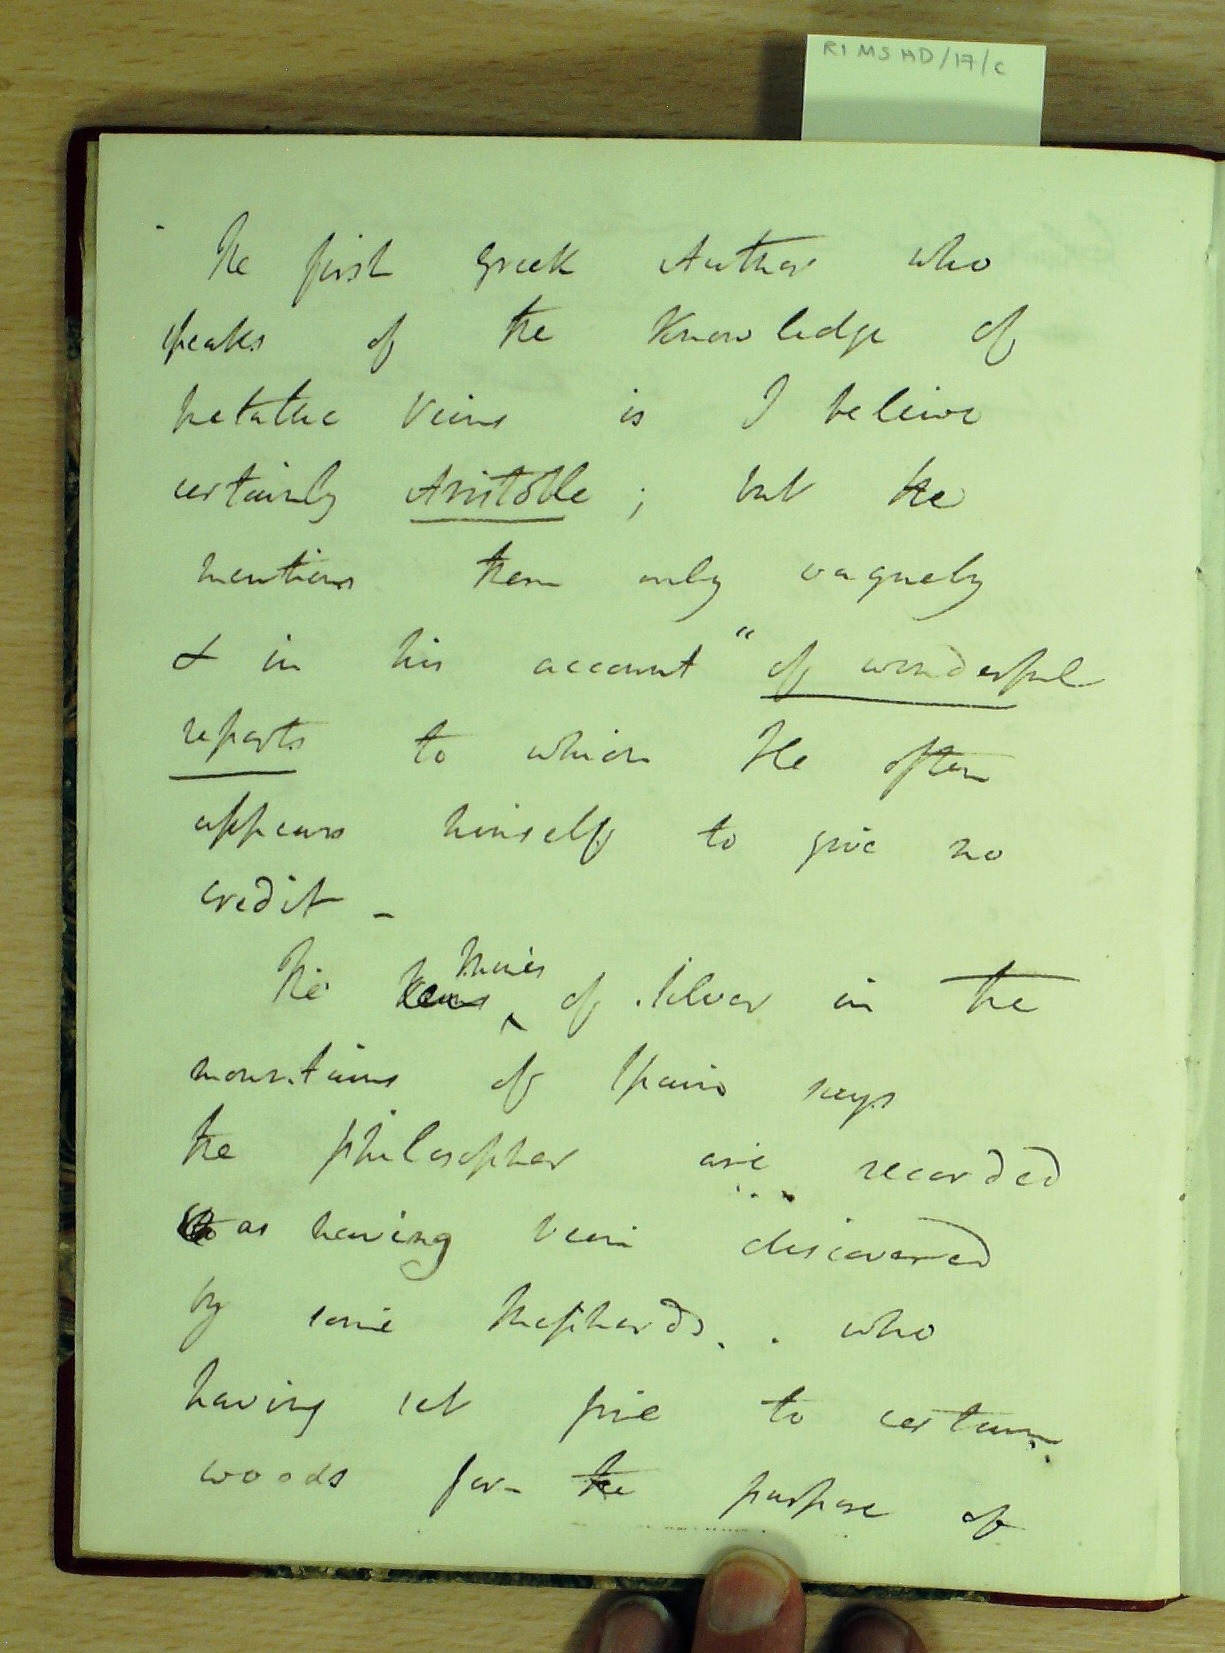 RI MS HD/17/c
The first Greek Author who
speaks of the Knowledge of
metallic Veins is I believe
certainly Aristotle ; but he
mentions them only vaguely
& in his account "of wonderful
reports to which He often
appears himself to give no
credit -
The Veins Mines of Silver in the
mountains of Spain says
the philosopher are recorded
as having been discovered
by some Shepherds. . who
having set fire to certain
woods for the purpose of